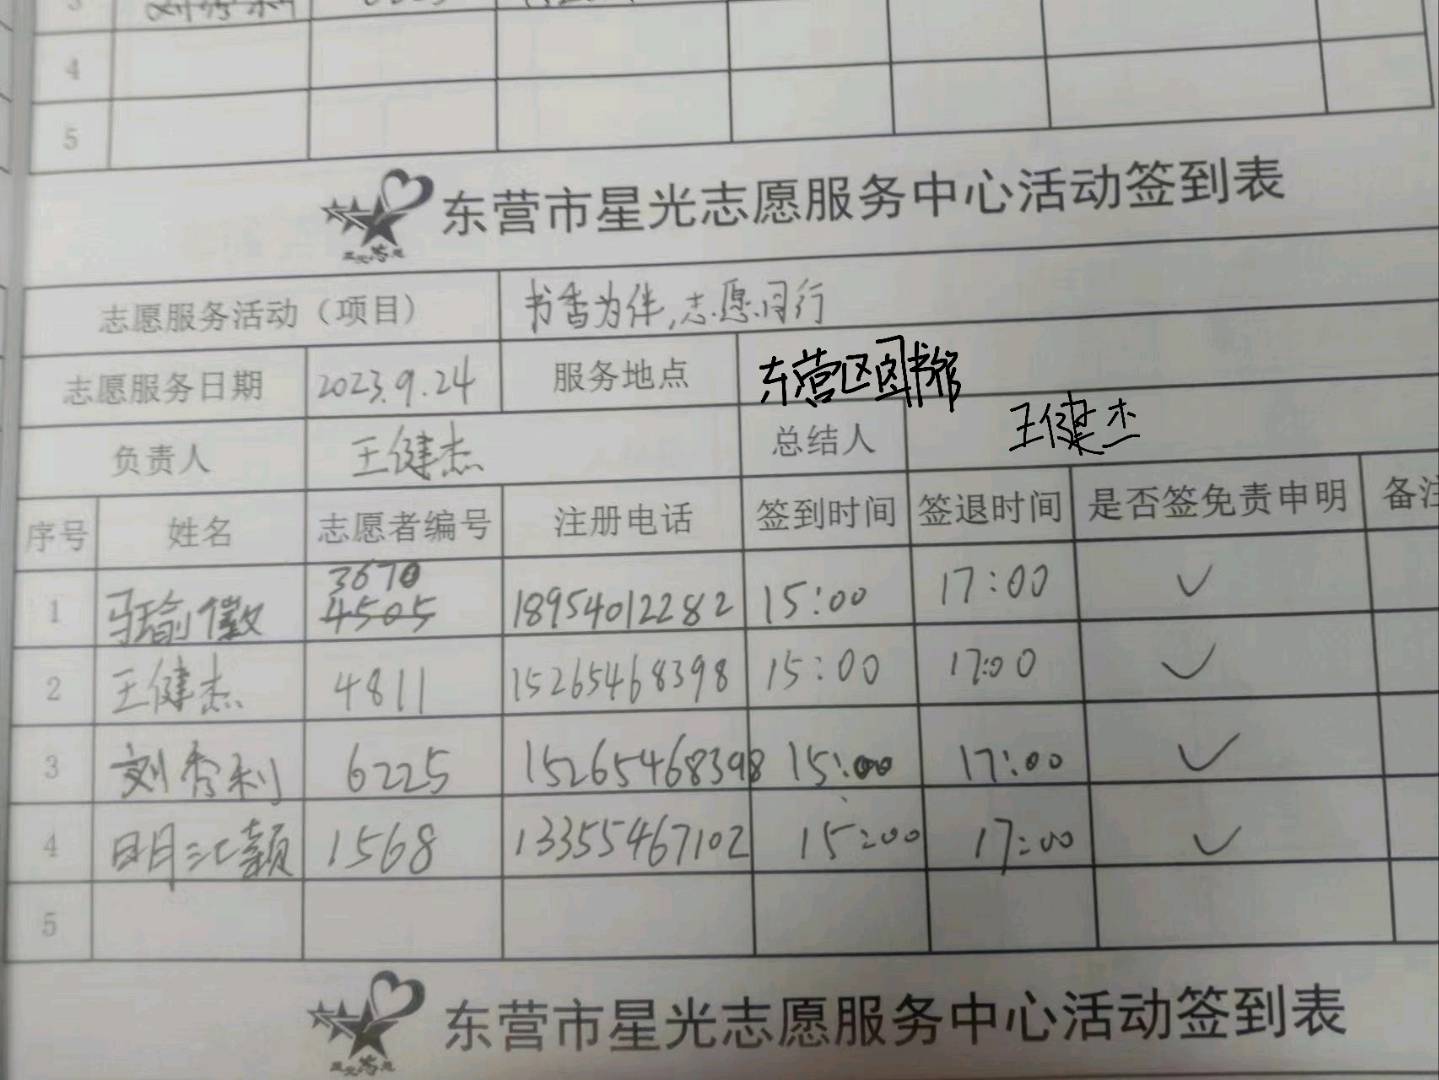 3
4
5
东营市星光志愿服务中心活动签到表
志愿服务活动（项目） 书香为伴,志愿同行
志愿服务日期 2023.9.24 服务地点 东营区图书馆
负责人 王健杰 总结人 王健杰
序号 姓名 志愿者编号 注册电话 签到时间 签退时间 是否签免责申明 备注
3670
1 马瑜徽 4505 18954012282 15:00 17:00 ✓
2 王健杰 4811 15265468398 15:00 17:00 ✓
3 刘秀利 6225 15265468398 15:00 17:00 ✓
4 1568 13355467102 15:00 17:00 ✓
5
东营市星光志愿服务中心活动签到表